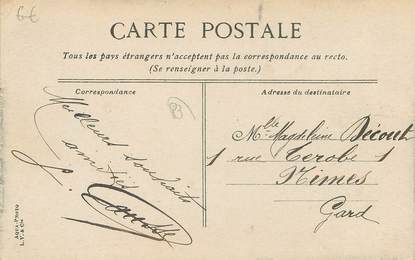 6€
CARTE POSTALE
Tous les pays étrangers n'acceptent pas la correspondance au recto.
(Se renseigner à la poste.)
Correspondance
Adresse du destinataire
Meilleurs souhaits
amitiés
Mlle Magdeleine Décout
1 rue Terobe 1
Nimes
Gard
AQUA-PHOTO
L.V. & Cie